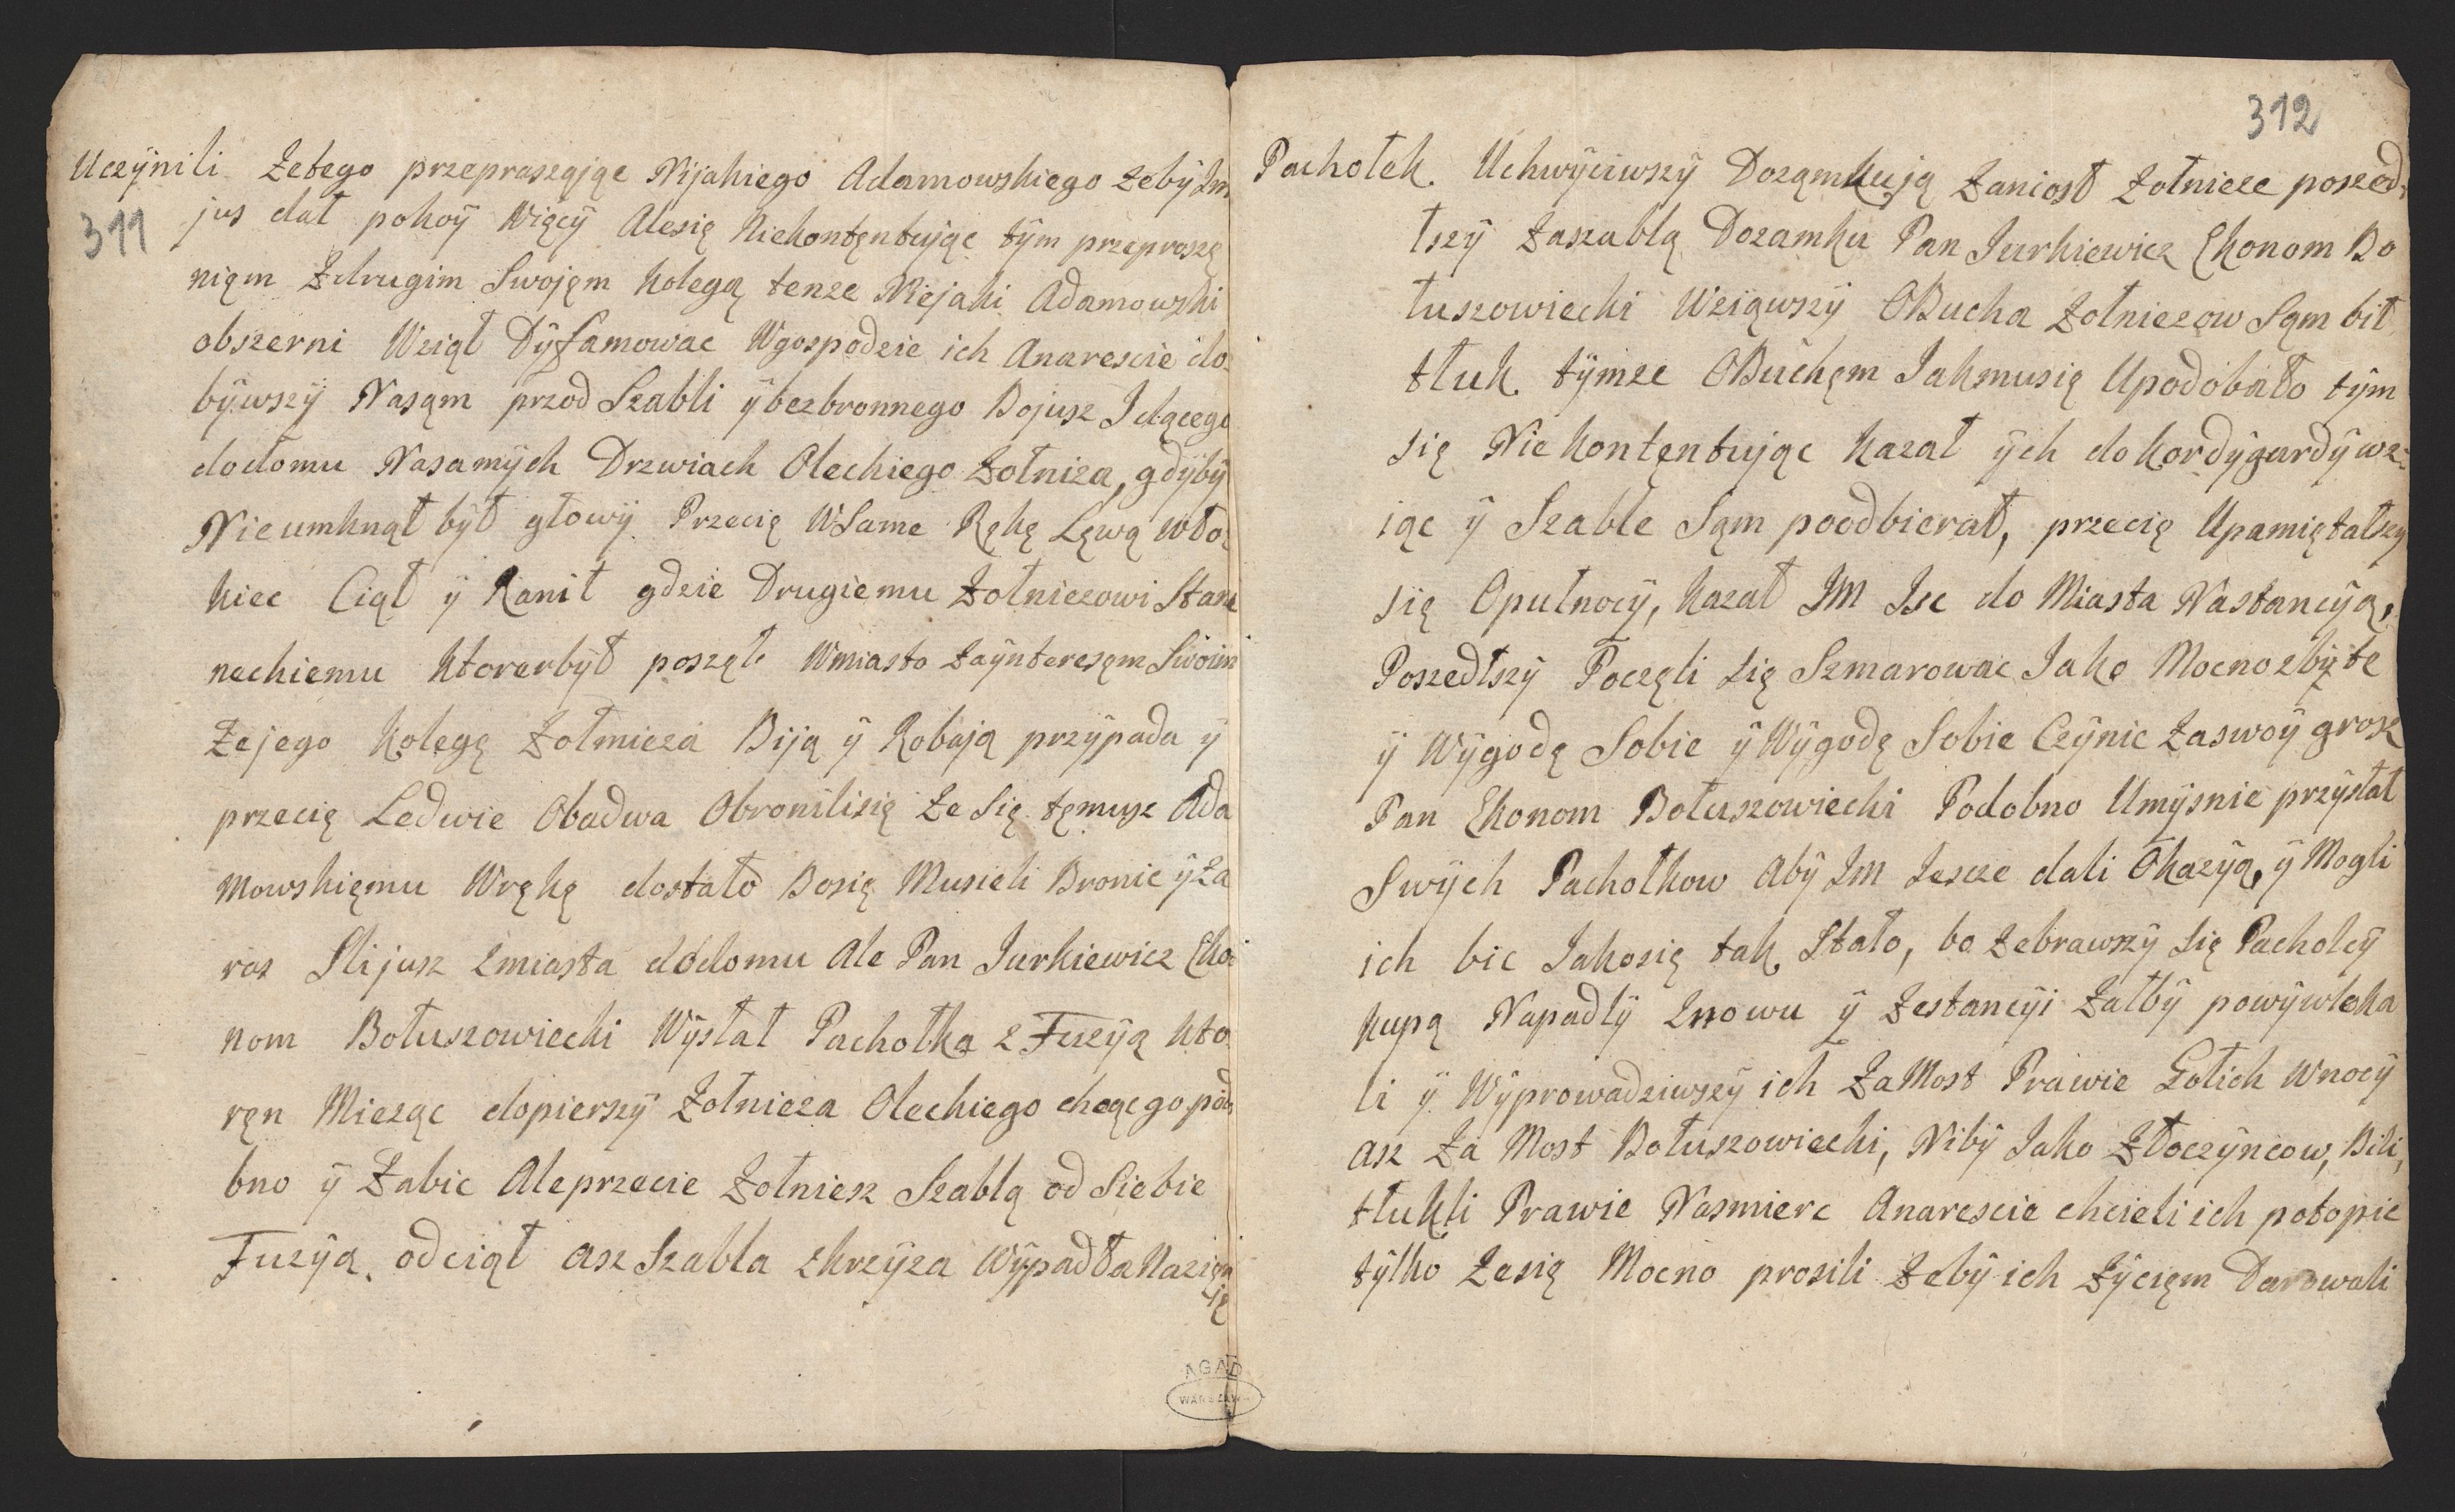 311
Uczÿnili Zetego przepraszające Nijakiego Adamowskiego zebÿ Im
jus dał pokoÿ Więcÿ Alesię Niekontętując tÿm przeproszę
nięm Zdrugim Swojęm Kolegą tenze Niejaki Adamowski
obszerni Wziął Dÿfamowac Wgospodzie ich Anarescie do
bÿwszÿ Nasąm przod Szabli ÿ bezbronnego Bojusz Idącego
dodomu Nasamÿch Drzwiach Oleckiego Zołniza, gdÿbÿ
Nieumknął bÿł głowÿ Przecię WSame Rękę Lęwą wło
kiec Ciął ÿ Ranił gdzie Drugiemu Zołniezowi Stan
neckiemu Ktorerbÿł poszęlt Wmiasto zaÿnteresęm Swoim
Zejego Kolegę Zołmieza Biją ÿ Robają przÿpada ÿ
przecię Ledwie Obadwa Obronilisię Ze Się tęmusz Ada
mowskięmu Wrękę dostało Bosię Musieli Bronic ÿ Za
ros Sli jusz Zmiasta dodomu Ale Pan Jurkiewicz Eko
nom Bołuszowiecki Wÿsłał Pachołka z Fuzÿą Kto
ręn Mieząc dopierszÿ Zołnieza Oleckiego chcąc go podo
bno ÿ Zabic Aleprzecie Zołniesz Szablą od Siebie
Fuzÿą odciął asz Szabla zkrzÿza Wÿpadła Nazięm
ię
AGAD
WARSZAWA
312
Pachołek Uchwÿciwszÿ Doząmkują Zaniosł Zołnieze poszed
łszÿ Zaszablą Dozamku Pan Jurkiewicz Ekonom Bo
łuszowiecki Wziąwszÿ OBucha Zołniezow Sąm bił
tłuk tÿmze OBuchęm Jakmusię Upodobało tÿm
się Nie kontęntując Kazał ÿch do Kordÿgardÿ wz
iąc ÿ Szable Sąm poodbierał, przecię Upamiętałszy
się Opułnocÿ, Kazał IM Isc do Miasta Nastancÿą,
Poszedłszÿ Poczęli się Szmarowac Jako Mocno zbÿte
ÿ Wÿgodę Sobie ÿ Wÿgodę Sobie Czÿnic Zaswoÿ grosz
Pan Ekonom Bołuszowiecki Podobno Umÿsnie przÿsłał
Swÿch Pachołkow Abÿ Im Jescze dali Okazÿą, ÿ Mogli
ich bic Jakosię tak Stało, bo Zebrawszÿ się Pacholcÿ
Kupą Napadlÿ Znowu ÿ Zestancÿi Załbÿ powÿwleka
li ÿ Wÿprowadziwszÿ ich Za Most Prawie Gołich wnocÿ
asz Za Most Bołuszowiecki, Nibÿ Jako Złoczÿncow, Bili,
tłukli Prawie Nasmierc Anarescie chcieli ich potopic
tÿlko Zesię Mocno prosili Zebÿ ich Zÿcięm Darowali